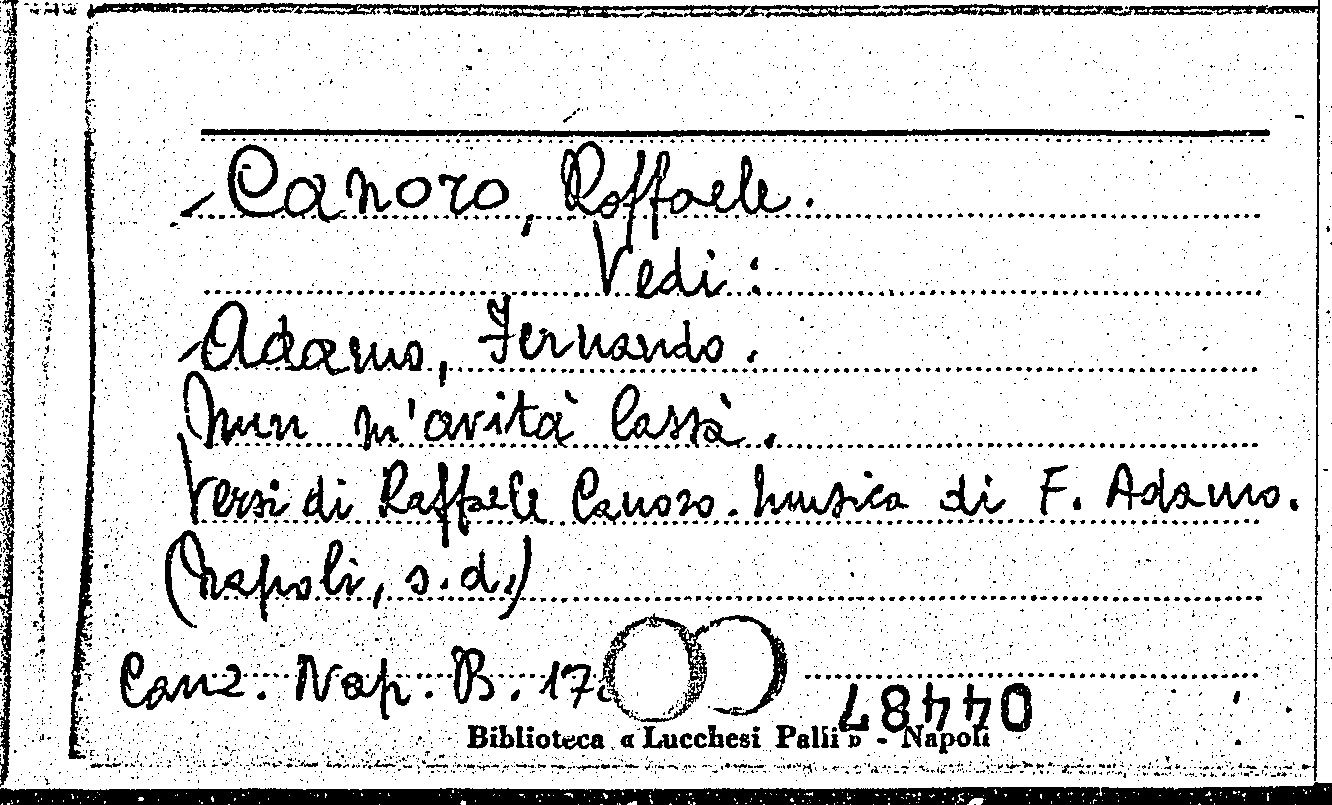 Canoro, Raffaele.
Vedi:
Adamo, Fernando.
Nun m'avita' lassà.
Versi di Raffaele Canoro. Musica di F. Adamo.
(Napoli, s.d.)
Canz. Nap. B. 17.
04487
Biblioteca « Lucchesi Palli » - Napoli